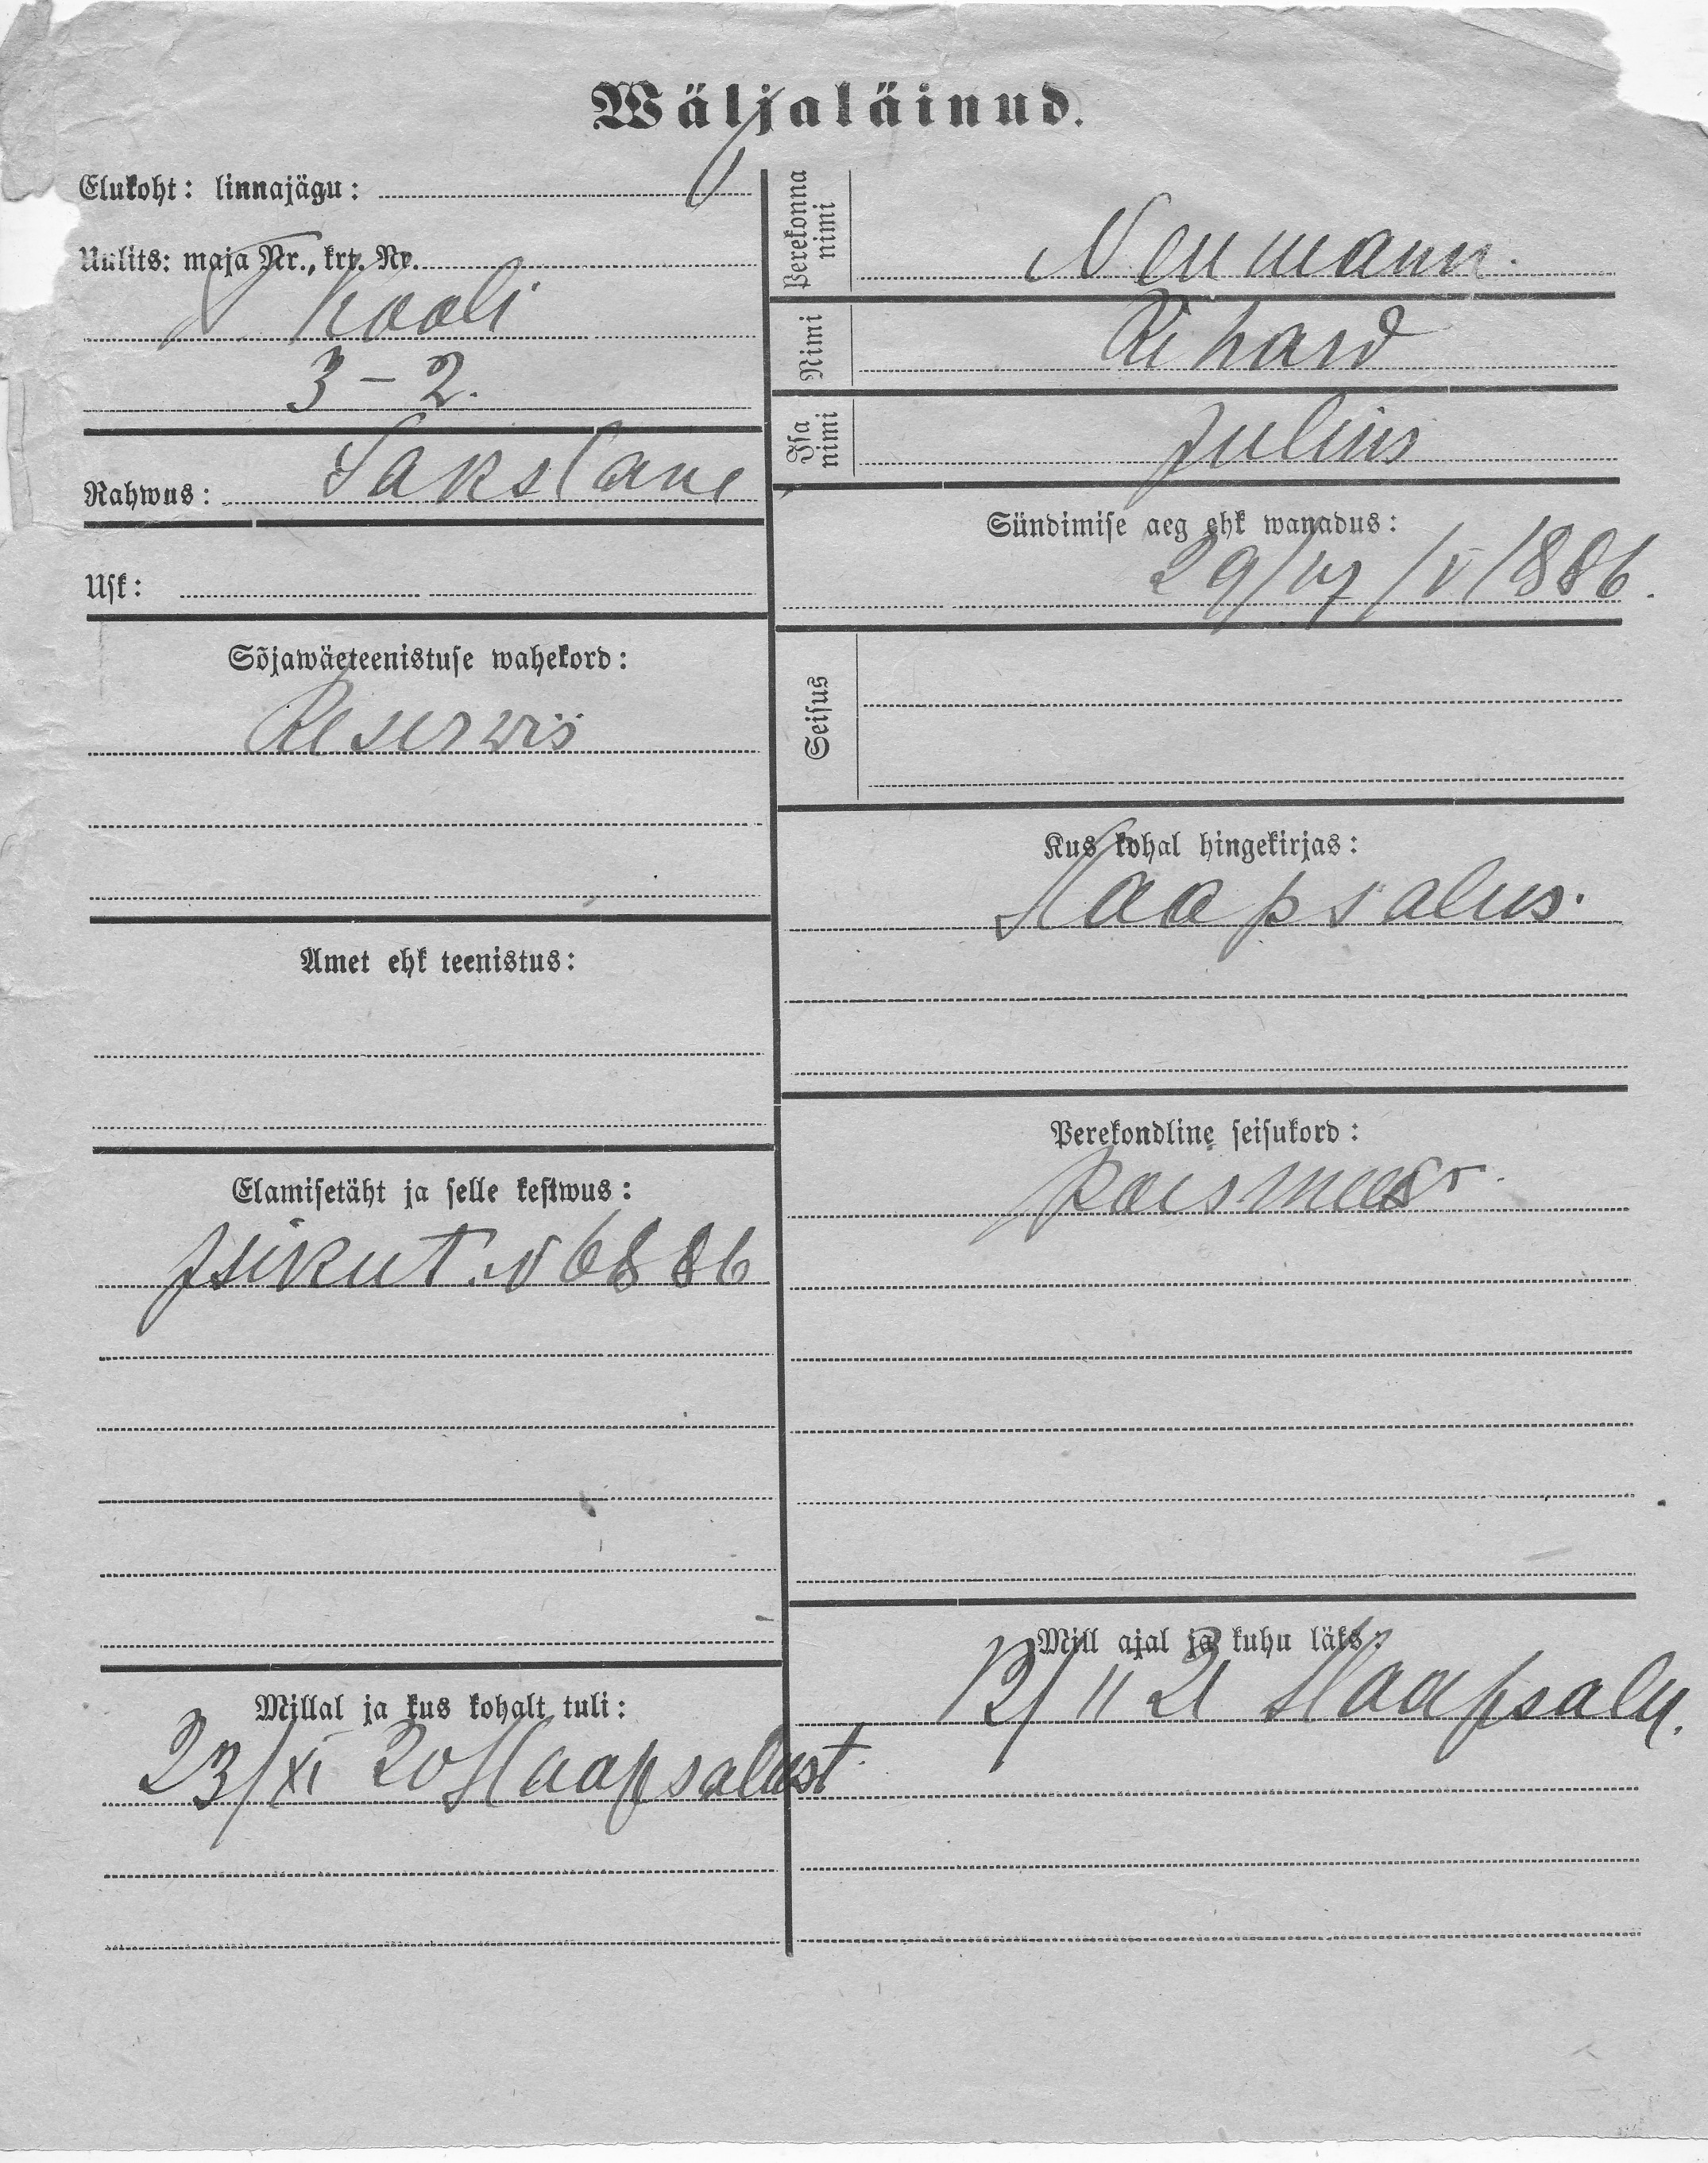 Wäljaläinud.
Elukoht: linnajägu: I
Uulits: maja Nr., krt. Nr.
Kooli
3 – 2.
Rahwus: Sakslane
Usk:
Sõjawäeteenistuse wahekord:
Reserwis
Amet ehk teenistus:
Elamisetäht ja selle kestwus:
Isikut. N 6886
Millal ja kus kohalt tuli:
23/XI 20 Haapsalust
Perekonna nimi
Neumann.
Nimi
Rihard
Isa nimi
Julius
Sündimise aeg ehk wanadus:
29/17/V/1886.
Seisus
Kus kohal hingekirjas:
Haapsalus.
Perekondline seisukord:
Poismees
Mill ajal ja kuhu läks:
12/II 21 Haapsalu.